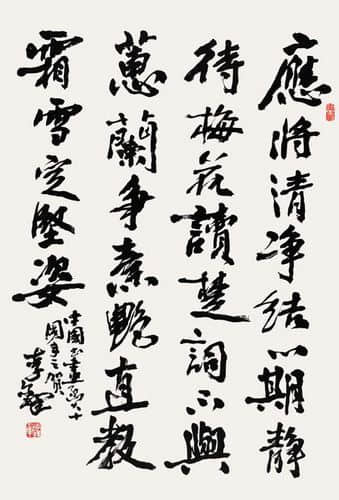 應將清净結心期靜
待梅花讀楚詞不與
蕙蘭爭素艷直教
霜雪定堅姿
中國书畫函大十
周年之賀
李鐸